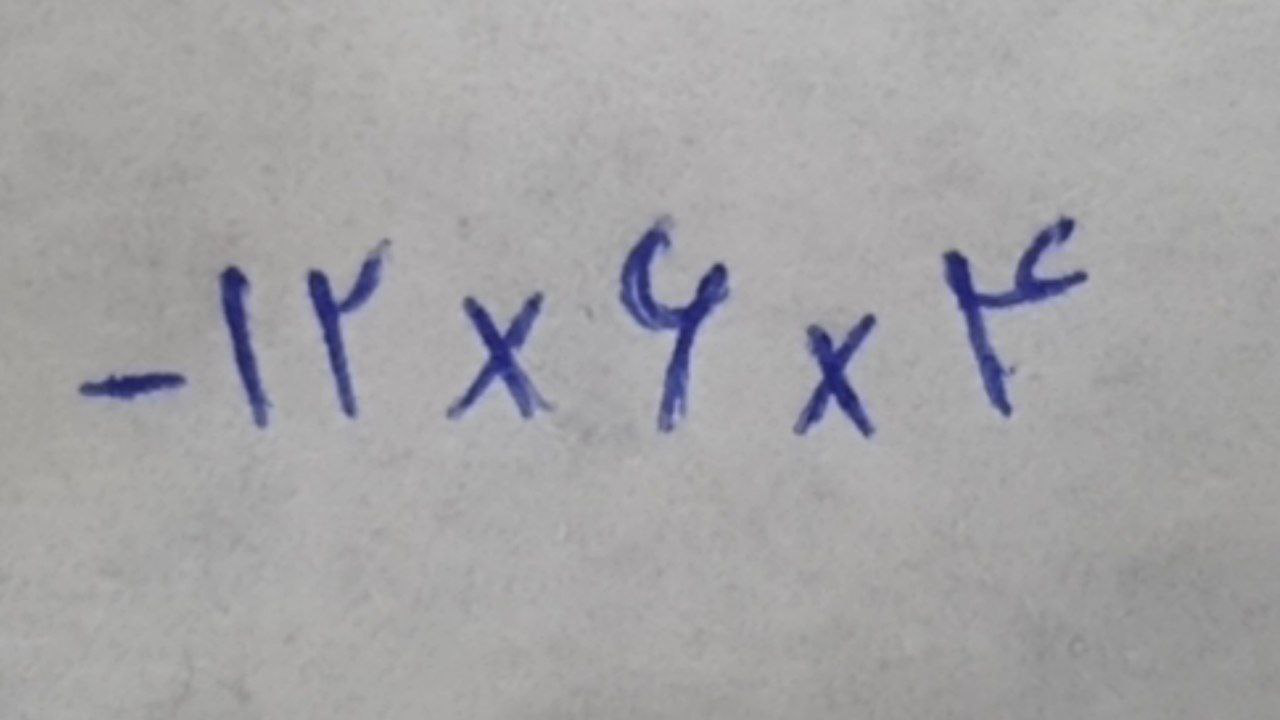 -۱۲ × ۶ × ۴